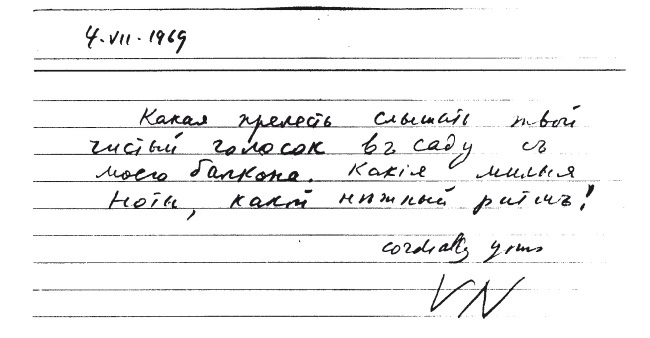 4.VII.1969
Какая прелесть слышать твой
чистый голосок въ саду съ
моего балкона. Какія милыя
ноты, какой нѣжный ритмъ!
cordially yours
VN